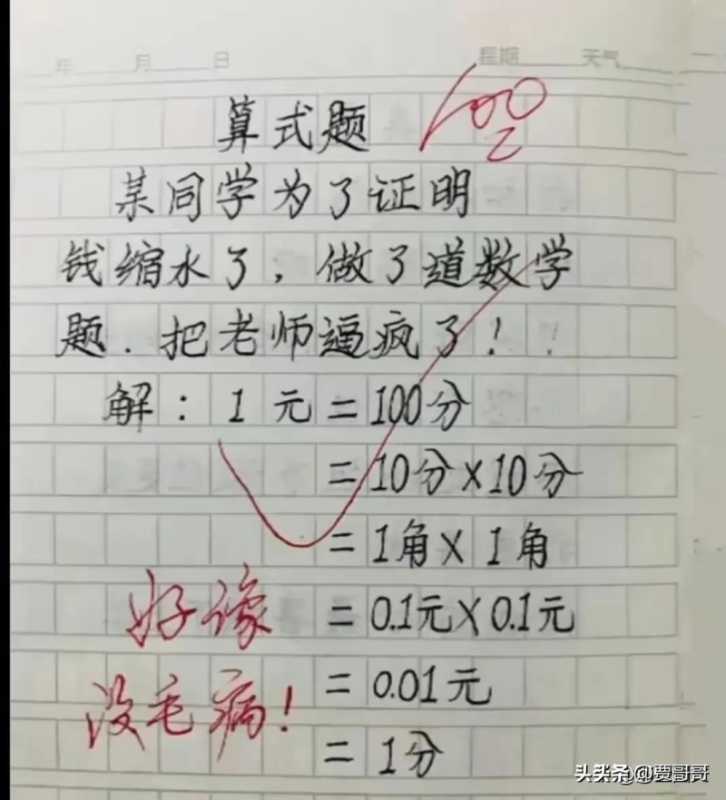 年 月 日 星期 天气
算式题
100
某同学为了证明
钱缩水了，做了道数学
题．把老师逼疯了！
解：1元=100分
=10分×10分
=1角×1角
=0.1元×0.1元
=0.01元
=1分
好像
没毛病！
头头条@贾哥哥